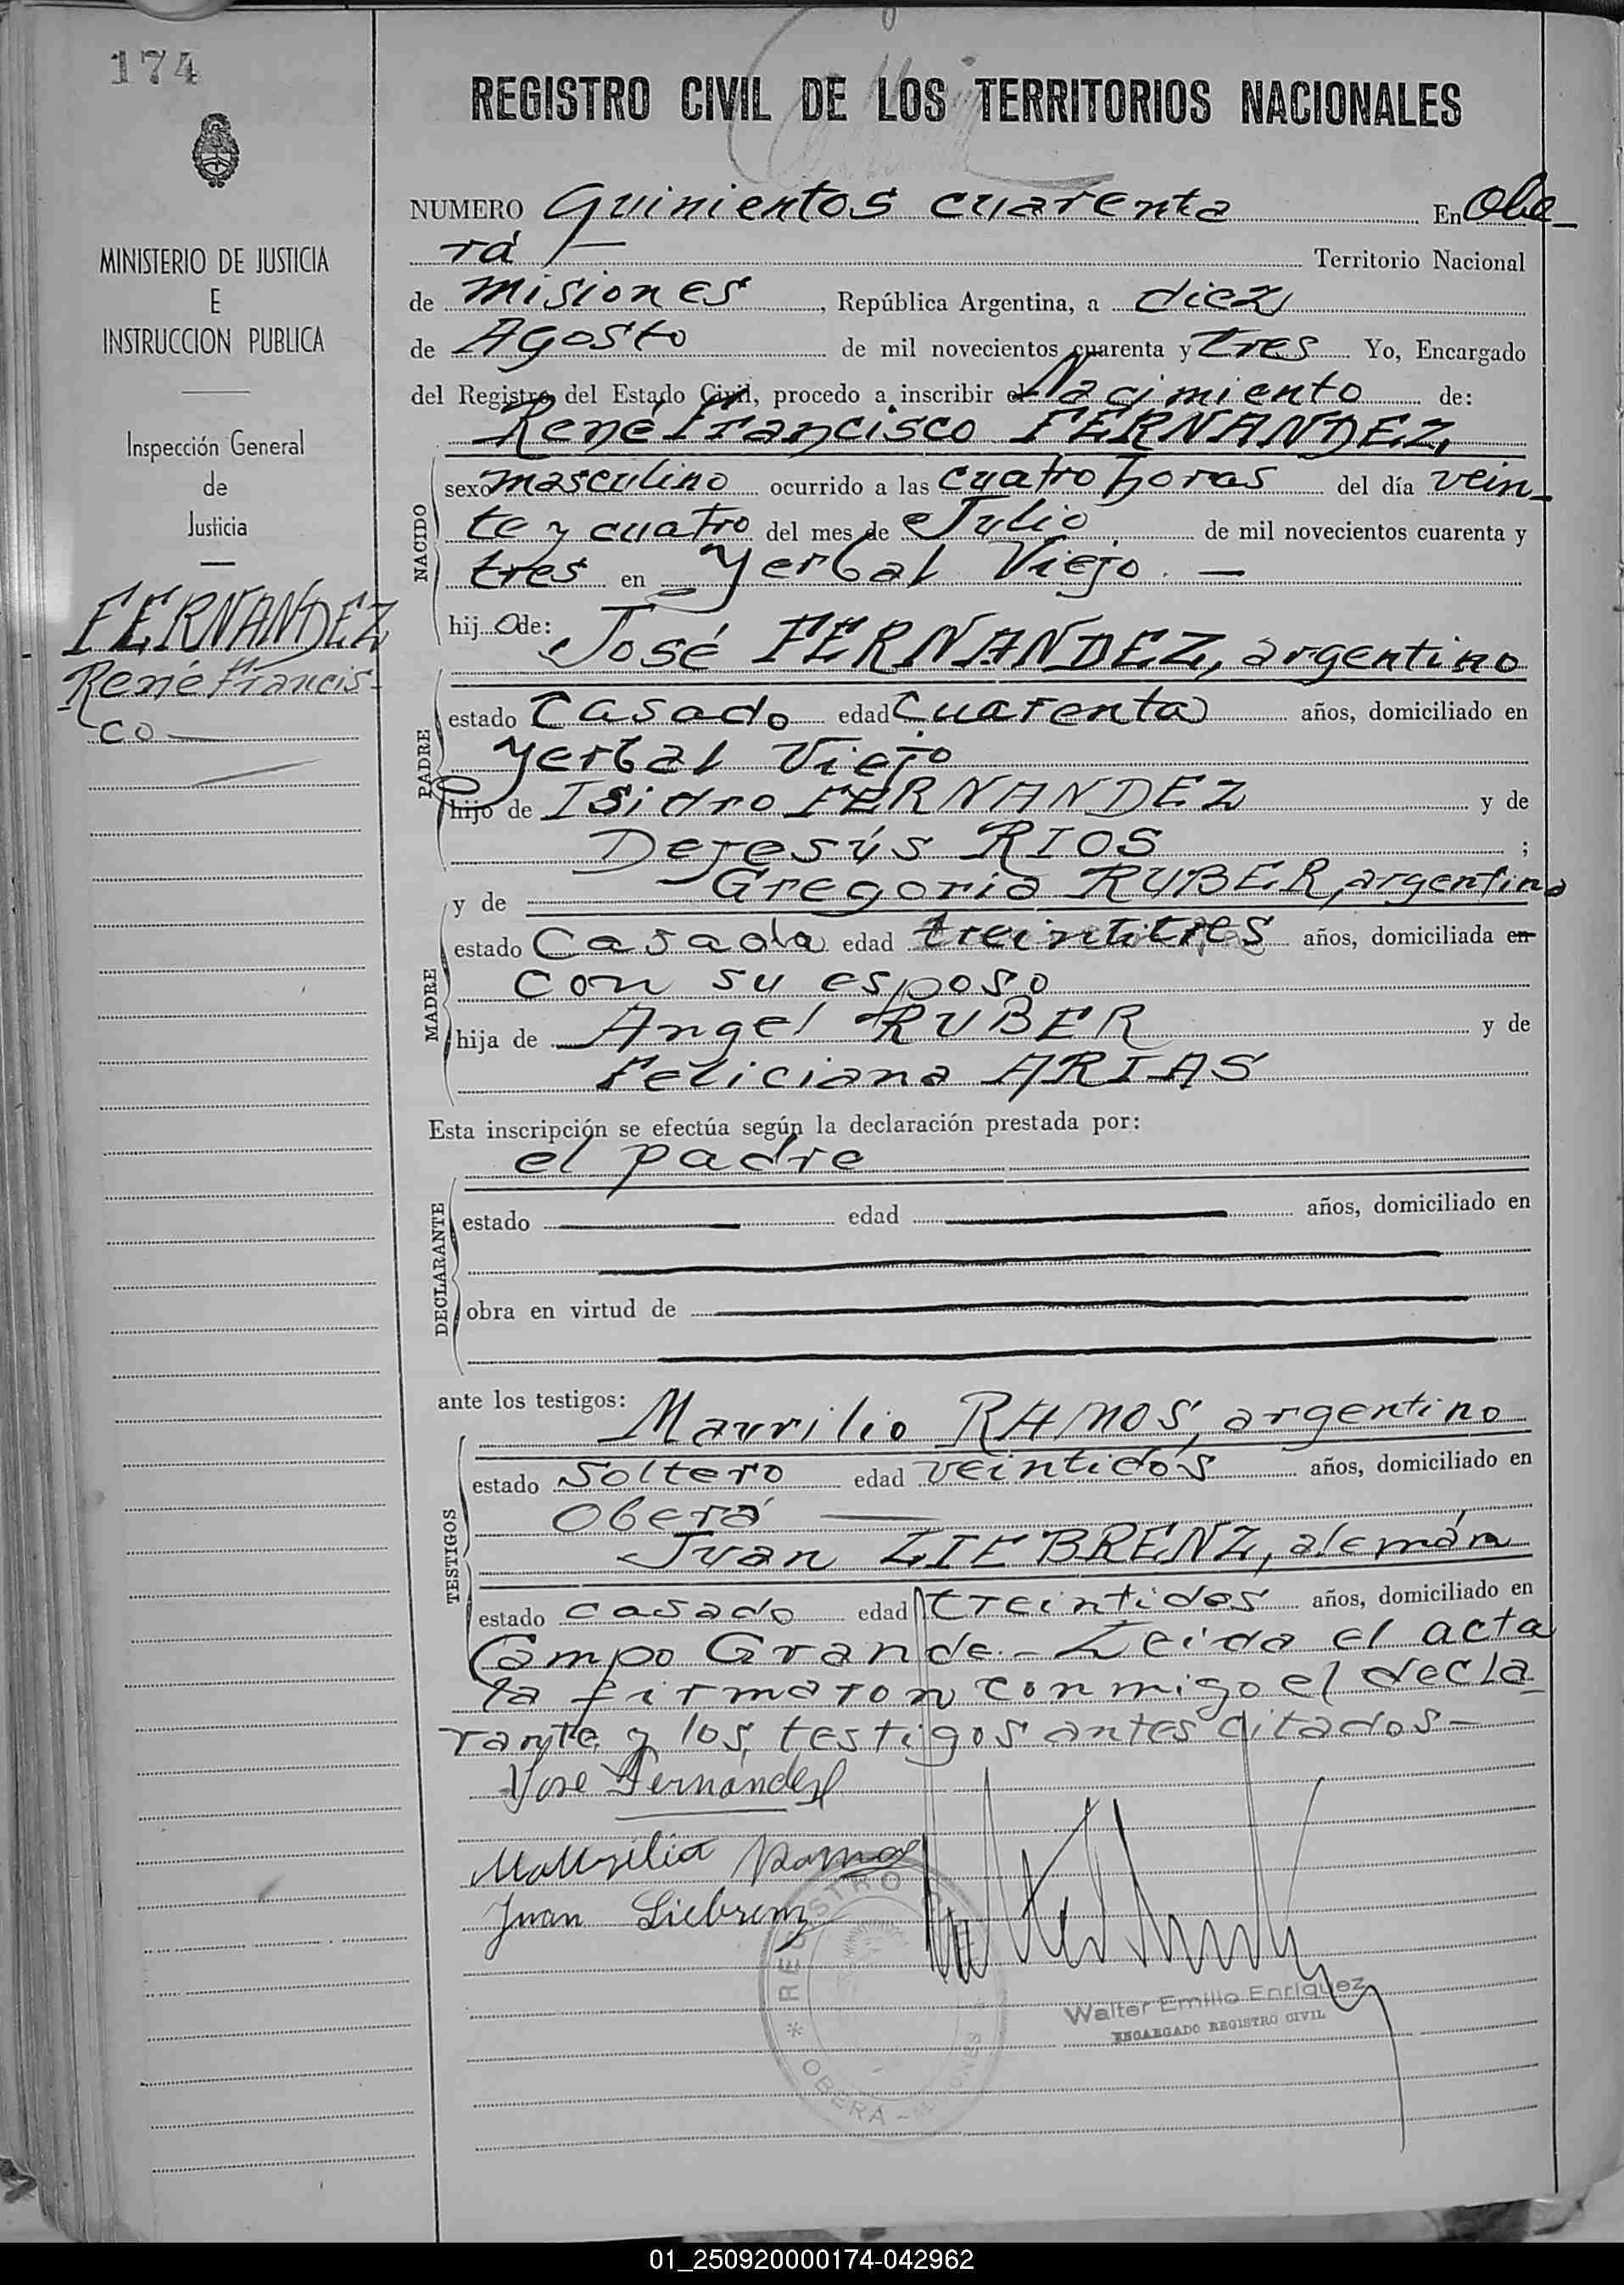 174
MINISTERIO DE JUSTICIA
E
INSTRUCCION PUBLICA
Inspección General
de
Justicia
FERNANDEZ
René Francis-
co
REGISTRO CIVIL DE LOS TERRITORIOS NACIONALES
NUMERO Quinientos cuarenta En Obe-
rá Territorio Nacional
de Misiones, República Argentina, a diez
de Agosto de mil novecientos cuarenta y tres Yo, Encargado
del Registro del Estado Civil, procedo a inscribir el Nacimiento de:
René Francisco FERNANDEZ,
NACIDO
sexo masculino ocurrido a las cuatro horas del día vein-
te y cuatro del mes de Julio de mil novecientos cuarenta y
tres en Yerbal Viejo. —
hijo de:
José FERNANDEZ, argentino
PADRE
estado Casado edad Cuarenta años, domiciliado en
Yerbal Viejo
hijo de Isidro FERNANDEZ y de
Dejesús RIOS ;
y de Gregoria RUBER, argentina
MADRE
estado Casada edad treintitres años, domiciliada en
con su esposo
hija de Angel RUBER y de
Feliciana ARIAS
Esta inscripción se efectúa según la declaración prestada por:
el padre
DECLARANTE
estado edad años, domiciliado en
obra en virtud de
ante los testigos:
Maurilio RAMOS, argentino
TESTIGOS
estado Soltero edad veintidós años, domiciliado en
Oberá —
Juan LIEBRENZ, alemán
estado casado edad treintidos años, domiciliado en
Campo Grande.- Leida el acta
la firmaron conmigo el decla-
rante y los testigos antes citados-
Jose Fernández
Maurilio Ramos
Juan Liebrenz
REGISTRO
* OBERÁ - MISIONES
Walter Emilio Enriquez
ENCARGADO REGISTRO CIVIL
01_250920000174-042962